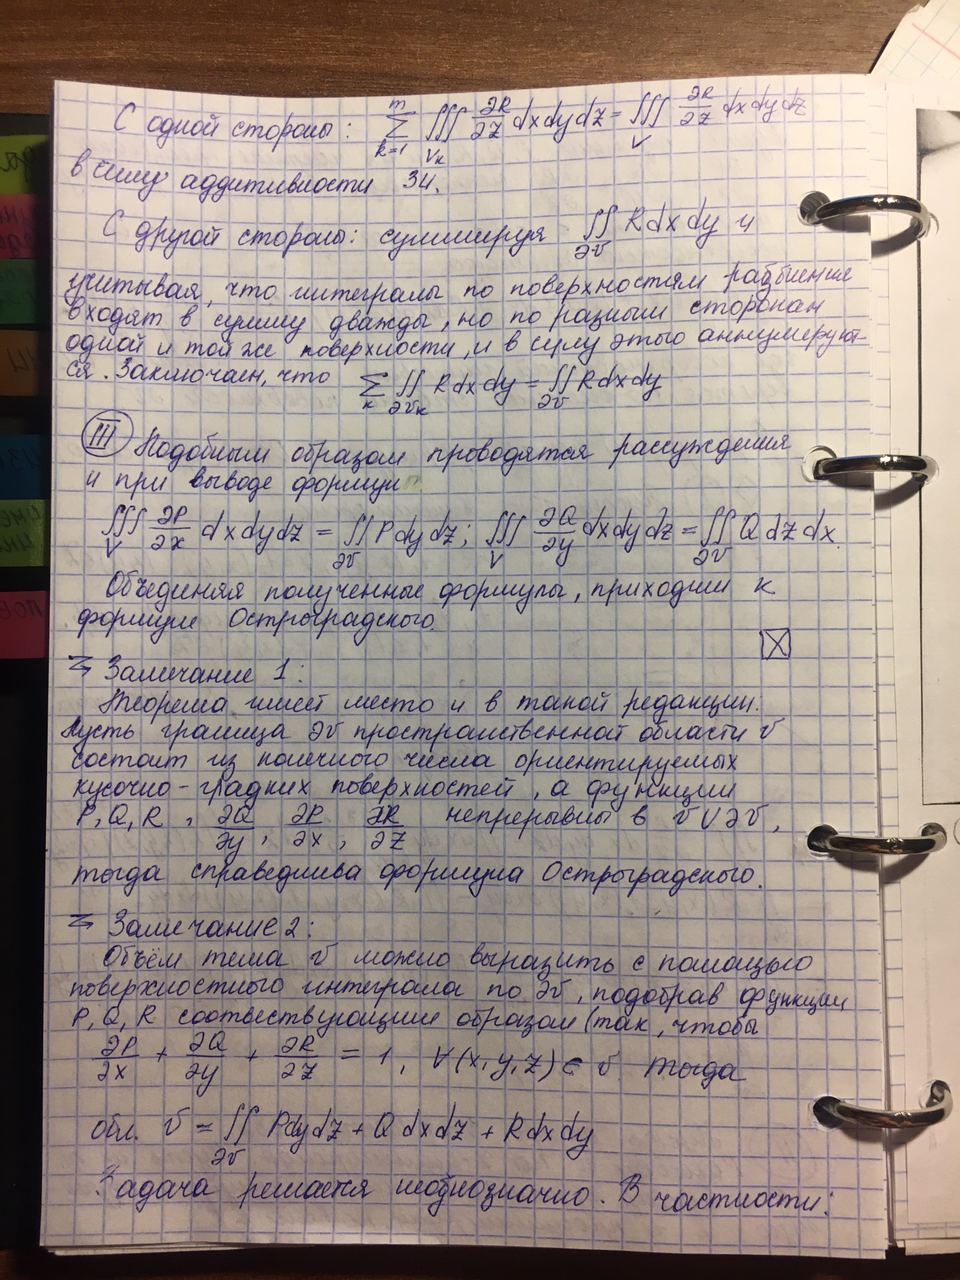 С одной стороны: ∑_{k=1}^{m} ∭_{V_k} ∂R/∂z dxdydz = ∭_V ∂R/∂z dxdydz
в силу аддитивности ЗИ.
С другой стороны: суммируя ∬_{∂V} R dx dy и
учитывая, что интегралы по поверхностям разбиения
входят в сумму дважды, но по разным сторонам
одной и той же поверхности, и в силу этого аннулируют-
ся. Заключаем, что ∑_k ∬_{∂V_k} R dx dy = ∬_{∂V} R dx dy
III Подобным образом проводятся рассуждения
и при выводе формул
∭_V ∂P/∂x dxdydz = ∬_{∂V} P dy dz; ∭_V ∂Q/∂y dxdydz = ∬_{∂V} Q dz dx.
Объединяя полученные формулы, приходим к
формуле Остроградского.
Замечание 1:
Теорема имеет место и в такой редакции.
Пусть граница ∂V пространственной области V
состоит из конечного числа ориентируемых
кусочно-гладких поверхностей, а функции
P, Q, R, ∂Q/∂y, ∂P/∂x, ∂R/∂z непрерывны в V ∪ ∂V,
тогда справедлива формула Остроградского.
Замечание 2:
Объём тела V можно выразить с помащью
поверхностного интеграла по ∂V, подобрав функции
P, Q, R соотвествующим образом (так, чтобы
∂P/∂x + ∂Q/∂y + ∂R/∂z = 1, ∀(x, y, z) ∈ V. Тогда
V = ∬_{∂V} P dy dz + Q dx dz + R dx dy
Задача решается неоднозначно. В частности: